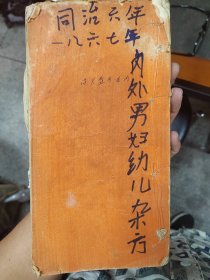 同治六年
一八六七年
内外男妇幼儿杂方